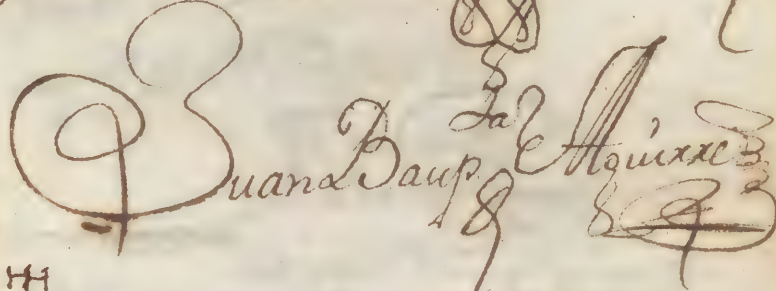 Juan Baup.ta Aguirre